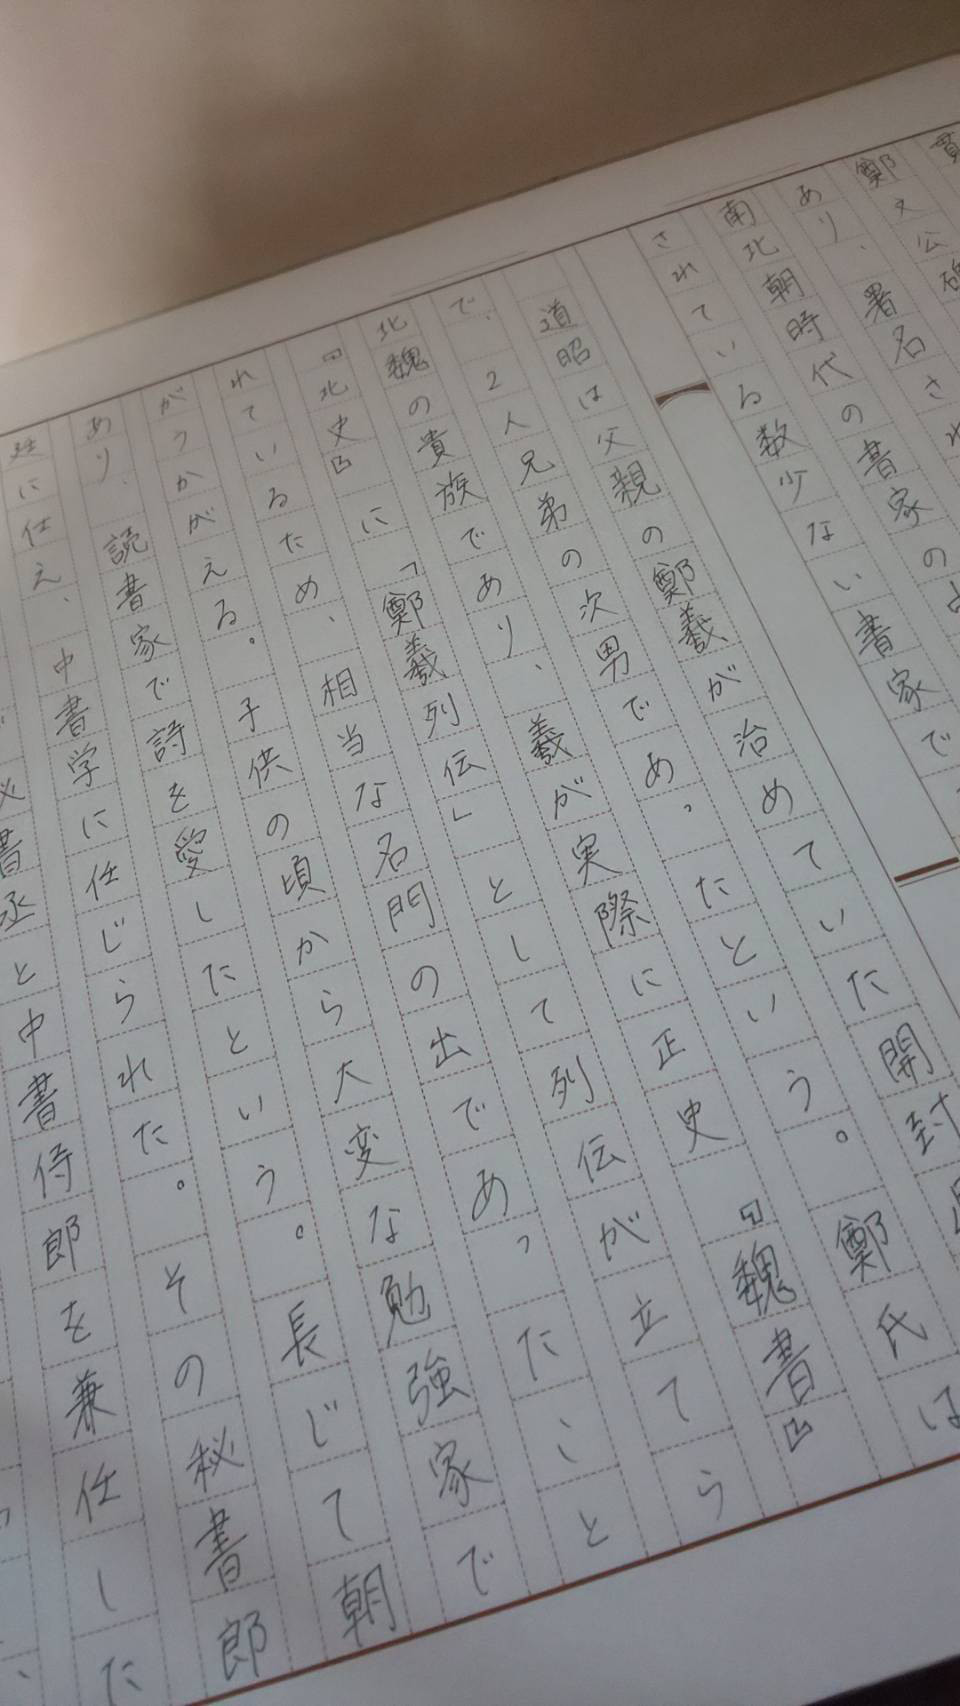 貫
鄭文公碑
あり、署名され
南北朝時代の書家の
されている数少ない書家で
道昭は父親の鄭羲が治めていた開封
で、2人兄弟の次男であったという。鄭氏は
北魏の貴族であり、羲が実際に正史『魏書』
『北史』に「鄭羲列伝」として列伝が立てら
れているため、相当な名門の出であったこと
がうかがえる。子供の頃から大変な勉強家で
あり、読書家で詩を愛したという。長じて朝
廷に仕え、中書学に任じられた。その秘書郎
秘書丞と中書侍郎を兼任した